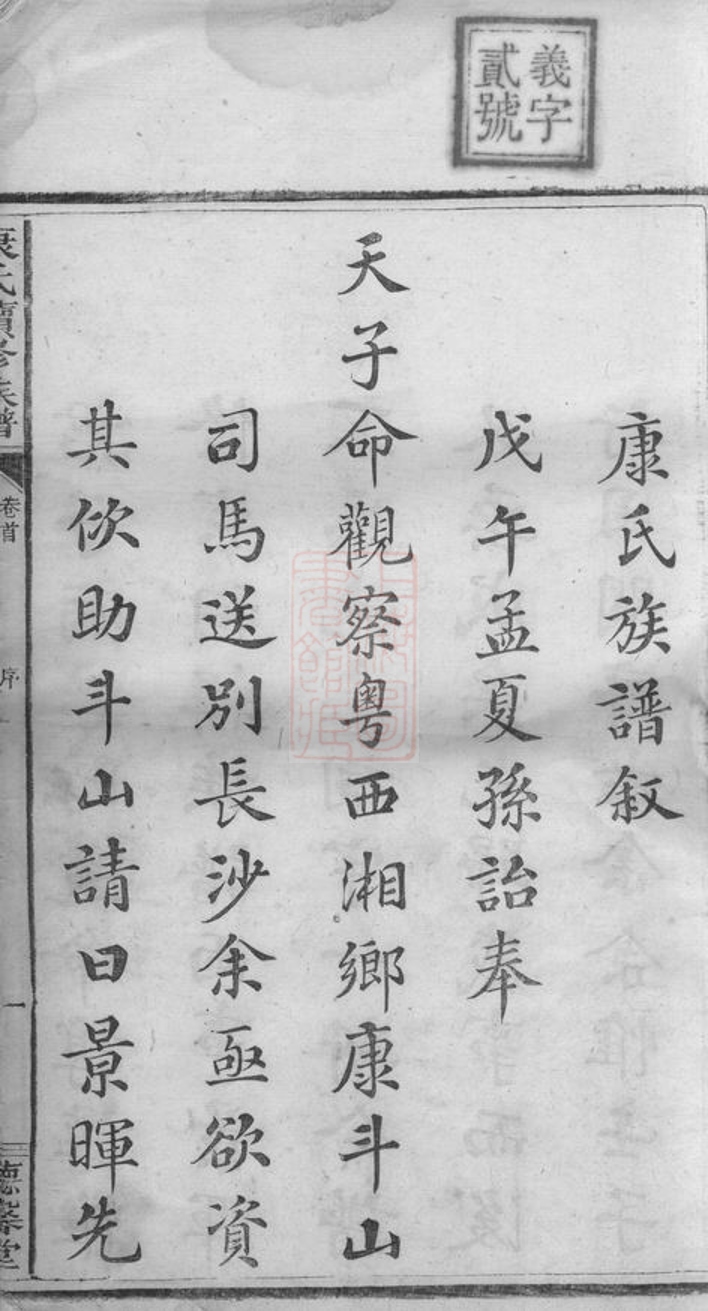 義字
貳號
康氏族譜叙
戊午孟夏孫詒奉
天子命觀察粵西湘鄉康斗山
司馬送別長沙余亟欲資
其佽助斗山請曰景暉先
康氏續修族譜
卷首
序
一